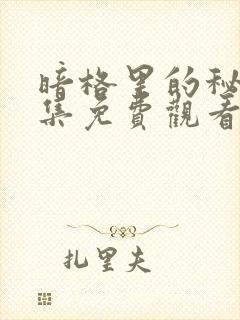 暗格里的秘
集免費觀看
扎里夫